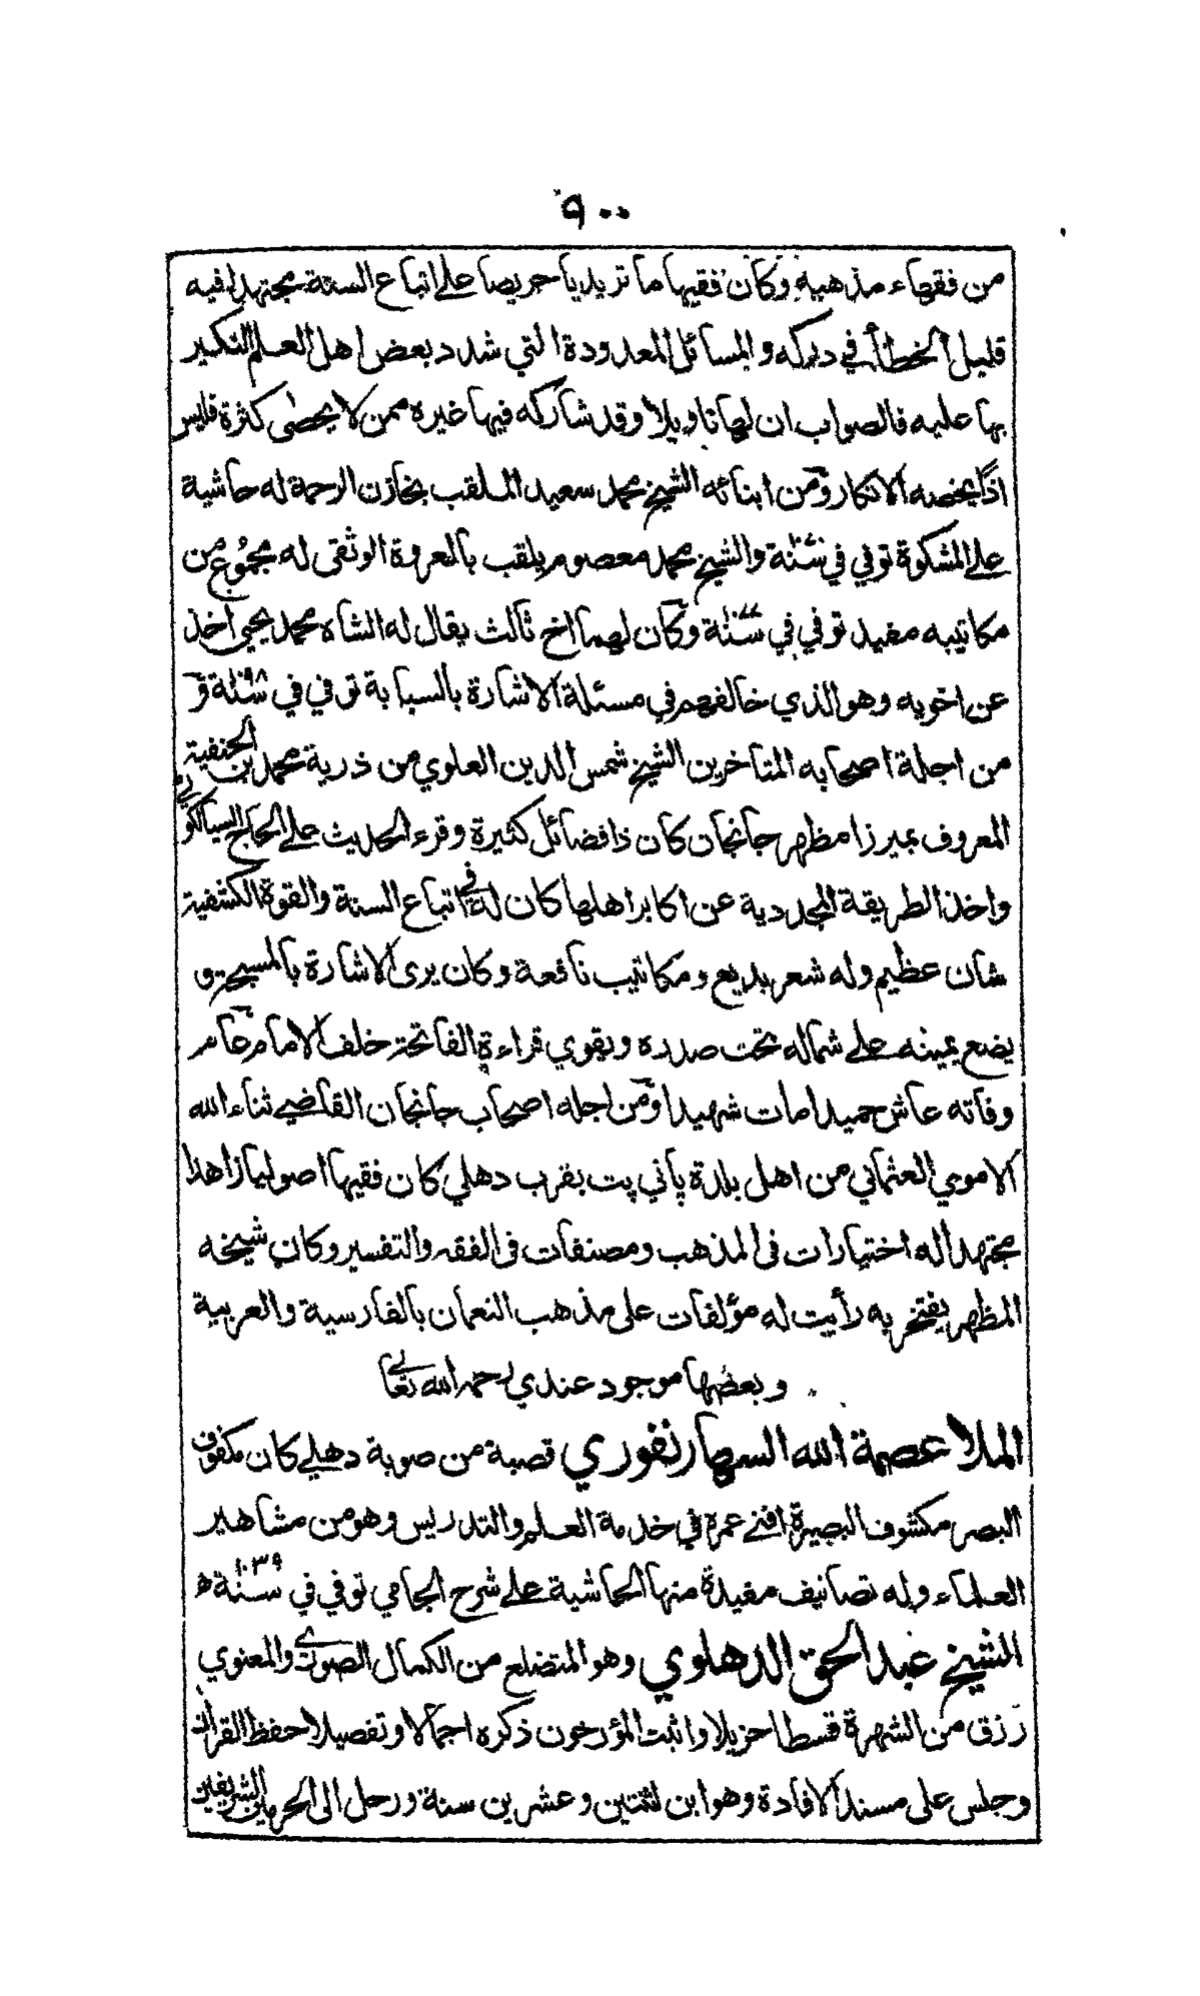 ٩٠٠
من فقهاء مذهبه وكان فقيها ماتريديا حريصا على اتباع السنة مجتهدا فيه
قليل الخطأ في دركه والمسائل المعدودة التي شدد بعض اهل العلم النكير
بها عليه فالصواب ان لها تاويلا وقد شاركه فيها غيره ممن لا يحصى كثرة فليس
اذًا يخصه الانكار ومن ابنائه الشيخ محمد سعيد الملقب بخازن الرحمة له حاشية
على المشكوة توفي في سنة والشيخ محمد معصوم يلقب بالعروة الوثقى له مجموع من
مكاتيبه مفيد توفي في سنة وكان لهما اخ ثالث يقال له الشاه محمد يحيى اخذ
عن اخويه وهو الذي خالفهم في مسئلة الاشارة بالسبابة توفي في سنة ١٠٩٨ و
من اجلة اصحابه المتاخرين الشيخ شمس الدين العلوي من ذرية محمد بن الحنفية
المعروف بميرزا مظهر جانجان كان ذا فضائل كثيرة وقرء الحديث على الحاج السيالكوتي
واخذ الطريقة المجددية عن اكابر اهلها كان له في اتباع السنة والقوة الكشفية
شان عظيم وله شعر بديع ومكاتيب نافعة وكان يرى الاشارة بالمسبحة و
يضع يمينه على شماله تحت صدره ويقوي قراءة الفاتحة خلف الامام عام
وفاته عاش حميدا مات شهيدا ومن اجله اصحاب جانجان القاضي ثناء الله
الاموي العثماني من اهل بلدة پاني پت بقرب دهلي كان فقيها اصوليا زاهدا
مجتهدا له اختيارات في المذهب ومصنفات في الفقه والتفسير وكان شيخه
المظهر يفتخر به رأيت له مؤلفات على مذهب النعمان بالفارسية والعربية
وبعضها موجود عندي رحمه الله تعالى
الملا عصمة الله السهارنفوري قصبة من صوبة دهلي كان مكفوف
البصر مكشوف البصيرة افنى عمره في خدمة العلم والتدريس وهو من مشاهير
العلماء وله تصانيف مفيدة منها الحاشية على شرح الجامي توفي في سنة ١٠٣٩ ه
الشيخ عبد الحق الدهلوي وهو المتضلع من الكمال الصوري والمعنوي
رزق من الشهرة قسطا جزيلا واثبت المؤرخون ذكره اجمالا وتفصيلا حفظ القران
وجلس على مسند الافادة وهو ابن اثنتين وعشرين سنة ورحل الى الحرمين الشريفين